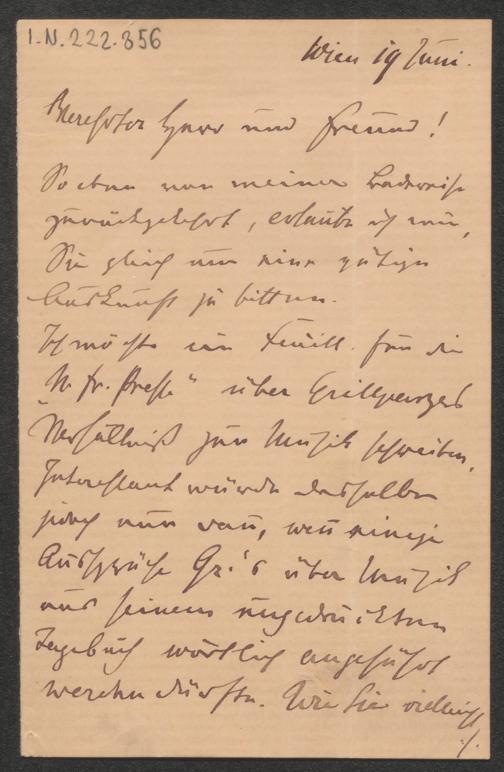 I.N. 222.856
Wien 19 Juni.
Verehrter Herr und Freund!
So eben von meiner Badereise
zurückgekehrt, erlaube ich mir,
Sie gleich um eine gütige
Auskunft zu bitten.
Ich möchte ein Feuill. für die
„N. fr. Presse" über Grillparzers
Verhältniß zur Musik schreiben.
Interessant würde dasselbe
jedoch nur dann, wenn einige
Aussprüche Gr.'s über Musik
aus seinem ungedruckten
Tagebuch wörtlich angeführt
werden dürften. Wie Sie vielleicht
./.